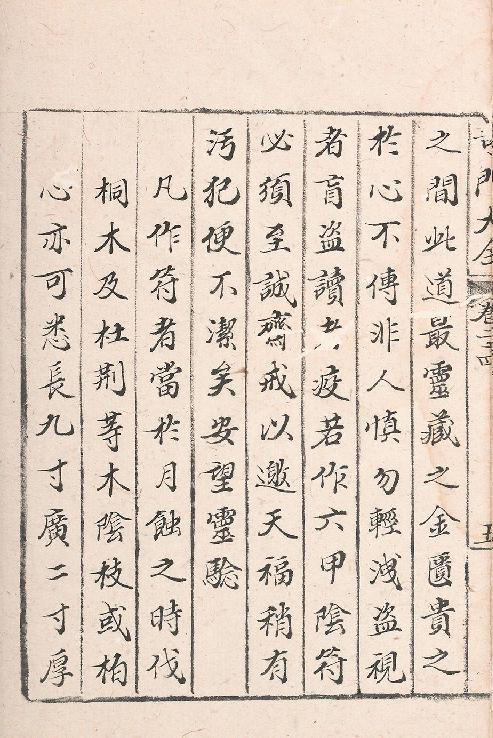 門大全
卷之四
五
之間此道最靈藏之金匱貴之
於心不傳非人慎勿輕洩盜視
者盲盜讀者疫若作六甲陰符
必須至誠齋戒以邀天福稍有
污犯便不潔矣安望靈驗
凡作符者當於月蝕之時伐
桐木及杜荆等木陰枝或柏
心亦可悉長九寸廣二寸厚